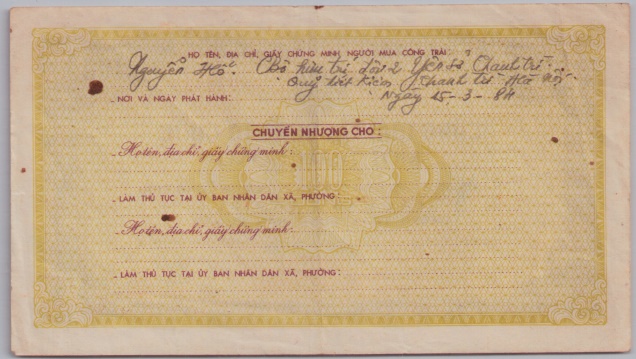 HỌ TÊN, ĐỊA CHỈ, GIẤY CHỨNG MINH NGƯỜI MUA CÔNG TRÁI:
Nguyễn Hốt. Cbộ hưu trí đội 2 Yên sở Thanh trì
Quỹ tiết kiệm Thanh trì Hà Nội
NƠI VÀ NGÀY PHÁT HÀNH: Ngày 25-3-84
CHUYỂN NHƯỢNG CHO:
Họ tên, địa chỉ, giấy chứng minh:
100
LÀM THỦ TỤC TẠI ỦY BAN NHÂN DÂN XÃ, PHƯỜNG:
Họ tên, địa chỉ, giấy chứng minh:
LÀM THỦ TỤC TẠI ỦY BAN NHÂN DÂN XÃ, PHƯỜNG: